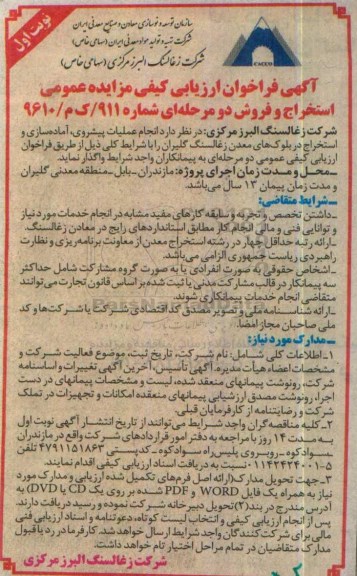 نوبت اول
سازمان توسعه و نوسازی معادن و صنایع معدنی ایران
شرکت تهیه و تولید مواد معدنی ایران (سهامی خاص)
شرکت زغالسنگ البرز مرکزی (سهامی خاص)
آگهی فراخوان ارزیابی کیفی مزایده عمومی
استخراج و فروش دو مرحله‌ای شماره ۹۱۱/ک م/۹۶۱۰
شرکت زغالسنگ البرز مرکزی: در نظر دارد انجام عملیات پیشروی، آماده‌سازی و
استخراج در بلوک‌های معدن زغالسنگ گلیران را با شرایط کلی ذیل از طریق فراخوان
ارزیابی کیفی عمومی دو مرحله‌ای به پیمانکاران واجد شرایط واگذار نماید.
ـ محل و مدت زمان اجرای پروژه: مازندران ـ بابل ـ منطقه معدنی گلیران
و مدت زمان پیمان ۱۳ سال می‌باشد.
ـ شرایط متقاضی:
ـ داشتن تخصص و تجربه و سابقه کارهای مفید مشابه در انجام خدمات مورد نیاز
و توانایی فنی و مالی انجام کار مطابق استانداردهای رایج در معادن زغالسنگ.
ـ ارائه رتبه حداقل چهار در رشته استخراج معدن از معاونت برنامه‌ریزی و نظارت
راهبردی ریاست جمهوری الزامی می‌باشد.
ـ اشخاص حقوقی به صورت انفرادی یا به صورت گروه مشارکت شامل حداکثر
سه پیمانکار در قالب مشارکت مدنی یا ثبت شده بر اساس قانون تجارت می‌توانند
متقاضی انجام خدمات پیمانکاری شوند.
ـ ارائه شناسه ملی و تصویر مصدق کد اقتصادی شرکت یا شرکت‌ها و کد
ملی صاحبان مجاز امضا.
ـ مدارک مورد نیاز:
۱ـ اطلاعات کلی شامل: نام شرکت، تاریخ ثبت، موضوع فعالیت شرکت و
مشخصات اعضاء هیأت مدیره. آگهی تأسیس، آخرین آگهی تغییرات و اساسنامه
شرکت، رونوشت پیمانهای منعقد شده، لیست و مشخصات پیمانهای در دست
اجرا، رونوشت مصدق ارزشیابی پیمانهای منعقده امکانات و تجهیزات در تملک
شرکت و رضایتنامه از کارفرمایان قبلی.
۲ـ کلیه مناقصه‌گران واجد شرایط می‌توانند از تاریخ انتشار آگهی نوبت اول
به مدت ۱۴ روز با مراجعه به دفتر امور قراردادهای شرکت واقع در مازندران
ـ سوادکوه ـ روبروی پلیس راه سوادکوه ـ کدپستی ۴۷۹۱۱۵۱۸۶۳ تلفن
۵-۰۱۱۴۲۴۲۴۰۰۱ نسبت به دریافت اسناد ارزیابی کیفی اقدام نمایند.
۳ـ جهت تحویل مدارک (ارائه اصل فرم‌های تکمیل شده ارزیابی و مدارک مورد
نیاز به همراه یک فایل WORD و PDF شده بر روی یک CD یا DVD) به
آدرس مندرج در بند (۲) تحویل دبیرخانه شرکت نموده و رسید دریافت دارند.
پس از انجام ارزیابی کیفی و انتخاب لیست کوتاه، دعوتنامه و اسناد ارزیابی فنی
مالی برای شرکت‌کنندگان واجد شرایط ارسال خواهد شد. کارفرما در رد یا قبول
مدارک متقاضیان در تمام مراحل اختیار تام خواهد داشت.
شرکت زغالسنگ البرز مرکزی